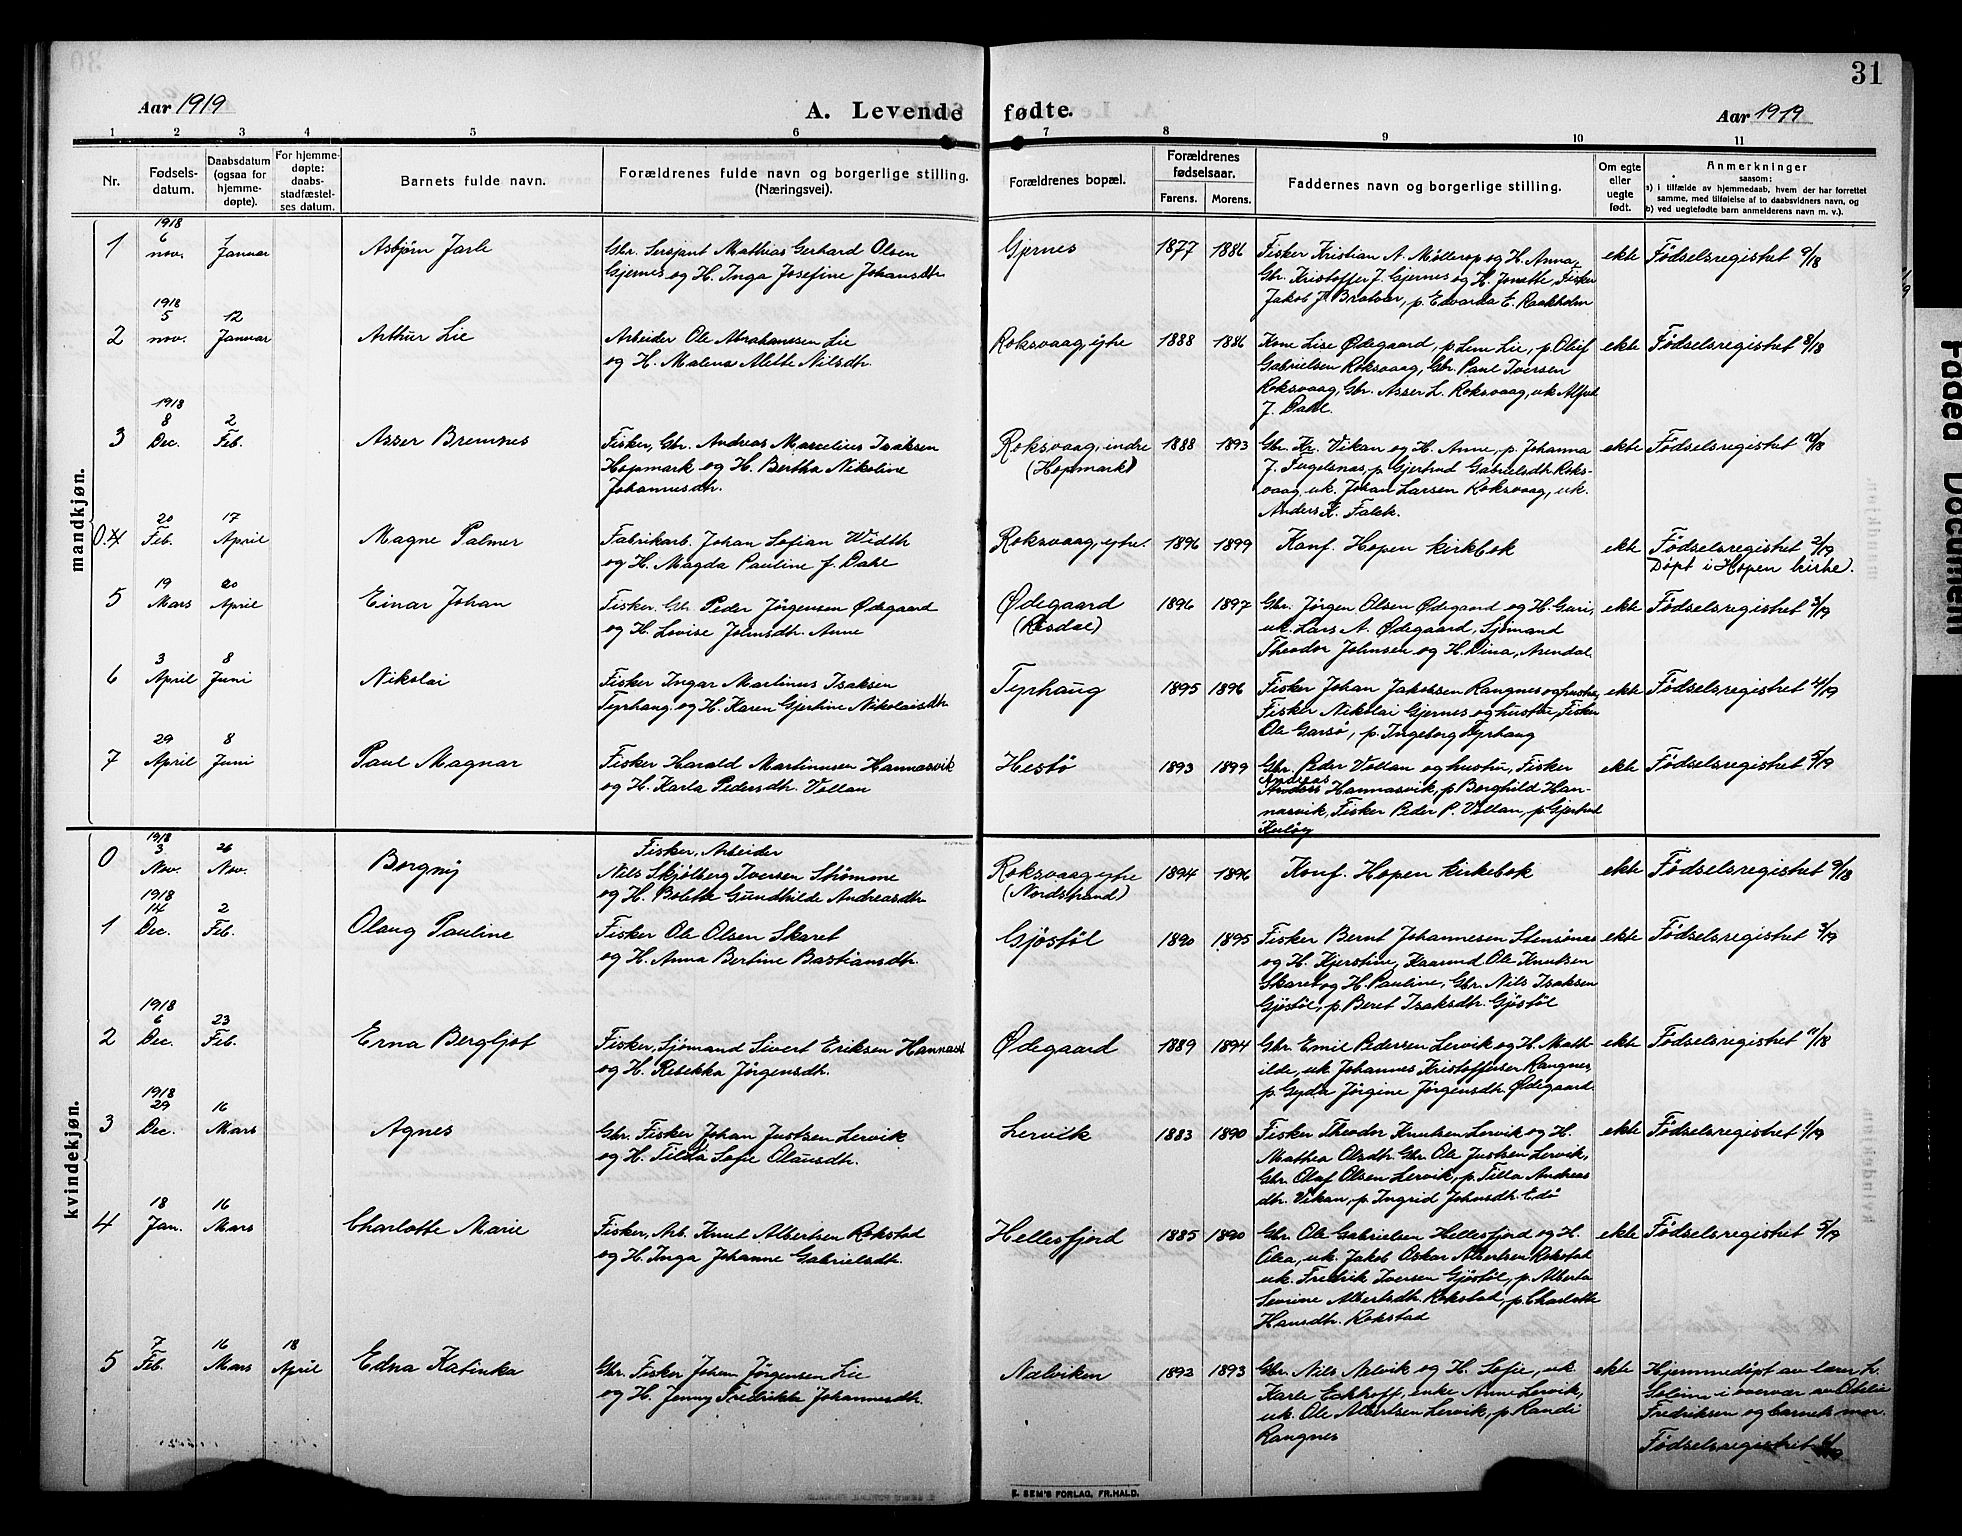 31
Aar 1919
A. Levende fødte.
Aar 1919
1 2 3 4 5 6 7 8 9 10 11
Nr.
Fødsels-
datum.
Daabsdatum
(ogsaa for
hjemme-
døpte).
For hjemme-
døpte:
daabs-
stadfæstel-
ses datum.
Barnets fulde navn.
Forældrenes fulde navn og borgerlige stilling.
(Næringsvei).
Forældrenes bopæl.
Forældrenes
fødselsaar.
Farens. Morens.
Faddernes navn og borgerlige stilling.
Om egte
eller
uegte
født.
Anmerkninger
saasom:
a) i tilfælde av hjemmedaab, hvem der har forrettet
samme, med tilføielse av to daabsvidners navn, og
b) ved uegtefødte barn anmelderens navn m. v.).
mandkjøn.
1
1918
6
nov.
1
Januar
Asbjørn Jarle
Gbr. Sersjant Mathias Gerhard Olsen
Gjernes og H. Inga Josefine Johansdtr
Gjernes
1877 1886
Fisker Kristian A. Møllerop og H. Anna,
Gbr. Kristoffer J. Gjernes og H. Jonette, Fisker
Jakob J. Bratvær, p. Edvarda E. Raakholm
ekte
Fødselsregistret 9/18
2
1918
5
nov.
12
Januar
Arthur Lie
Arbeider Ole Abrahamsen Lie
og H. Malena Alette Nilsdtr.
Roksvaag, ytre
1888 1886
Kone Lise Ødegaard, p. Lene Lie, p. Oluf
Gabrielsen Roksvaag, Gbr. Paul Iversen
Roksvaag, Gbr. Asser L. Roksvaag, uk. Alfred
J. Dahl.
ekte
Fødselsregistret 8/18
3
1918
8
Dec.
2
Feb.
Asser Bremnes
Fisker, Gbr. Andreas Marcelius Isaksen
Hopmark og H. Bertha Nikoline
Johannesdtr.
Roksvaag, indre
(Hopmark)
1888 1893
Gbr. Kr. Vikan og H. Anne, p. Johanna
J. Fugelsnas, p. Gjertrud Gabrielsdtr Roks-
vaag, uk. Johan Larsen Roksvaag, uk.
Anders K. Falek.
ekte
Fødselsregistret 10/18
0.
20
Feb.
17
April
Magne Palmer
Fabrikarb. Johan Sofian Width
og H. Magda Pauline f. Dahl
Roksvaag, ytre.
1896 1899
Konf. Hopen kirkbok
ekte
Fødselsregistret 2/19
Døpt i Hopen kirke).
5
19
Mars
20
April
Einar Johan
Fisker. Gbr Peder Jørgensen Ødegaard
og H. Lovise Johnsdtr. Anne
Ødegaard
(Resdal)
1896 1897
Gbr. Jørgen Olsen Ødegaard og H. Guri,
uk. Lars A. Ødegaard, Sjømand
Theodor Johnsen og H. Dina, Arendal.
ekte
Fødselsregistret 3/19
6
3
April
8
Juni
Nikolai
Fisker Ingar Martinus Isaksen
Tyrhaug. og H. Karen Gjertine Nikolaisdtr
Tyrhaug
1895 1896
Fisker Johan Jakobsen Rangnes og hustru,
Fisker Nikolai Gjernes og hustru, Fisker
Ole Garsø, p. Ingeborg Tyrhaug
ekte
Fødselsregistret 4/19
7
29
April
8
Juni
Paul Magnar
Fisker Harald Martinusen Hannasvik
og H. Karla Pedersdtr. Vollan
Hestø
1893 1899
Gbr. Peder Vollan og hustru, Fisker
Andreas
Hannasvik, p. Borghild Han-
nasvik, Fisker Peder P. Vollan, p. Gjertrud
Kuløy
ekte
Fødselsregistret 5/19
kvindekjøn.
0
1918
3
Nov.
26
Nov.
Borgny
Fisker, Arbeider
Nils Skjølberg Iversen Strømme
og H. Bolette Gundhilde Andreasdtr
Roksvaag ytre
(Nordstrand)
1894 1896
Konf. Hopen kirkebok
ekte
Fødselsregistret 9/18
1
1918
14
Dec.
2
Feb.
Olaug Pauline
Fisker Ole Olsen Skaret
og H. Anna Bertine Bastiansdtr.
Gjøstøl
1890 1895
Fisker Bernt Johannesen Stensønes
og H. Kjerstine, Kaarmd Ole Knutsen
Skaret og H. Pauline, Gbr. Nils Isaksen
Gjøstøl, p. Beret Isaksdtr. Gjøstøl
ekte
Fødselsregistret 2/19
2
1918
6
Dec.
23
Feb.
Erna Bergljot
Fisker, Sjømand Sivert Eriksen Hannasvik
og H. Rebekka Jørgensdtr.
Ødegaard
1889 1894
Gbr. Emil Pedersen Lervik og H. Math-
ilde, uk. Johannes Kristoffersen Rangnes,
p. Gyda Jørgine Jørgensdtr. Ødegaard
ekte
Fødselsregistret 11/18
3
1918
29
Dec.
16
Mars
Agnes
Gbr. Fisker Johan Justsen Lervik
og H. Tilda Sofie Olausdtr.
Lervik
1883 1890
Fisker Theodor Knutsen Lervik og H.
Mathea Olsdtr. Gbr. Ole Justsen Lervik,
Gbr. Olaf Olsen Lervik, p. Tilla Andreas
dtr. Vikan, p. Ingrid Johnsdtr. Edø
ekte
Fødselsregistret 1/19
4
18
Jan.
16
Mars
Charlotte Marie
Fisker, Arb. Knut Albertsen Rokstad
og H. Inga Johanne Gabrielsdtr.
Hellesfjord
1885 1890
Gbr. Ole Gabrielsen Hellesfjord og H.
Olea, uk. Jakob Oskar Albertsen Rokstad
uk. Fredrik Iversen Gjøstøl, p. Alberta
Severine Albertsdtr. Rokstad, p. Charlotte
Hansdtr. Rokstad
ekte
Fødselsregistret 5/19
5
7
Feb.
16
Mars
18
April
Edna Katinka
Gbr. Fisker Johan Jørgensen Lie
og H. Jenny Fredrikke Johannesdtr.
Nælviken
1892 1893
Gbr. Nils Nelvik og H. Sofie, uk.
Karle Eckhoff, enke Anne Lervik,
uk. Ole Albertsen Lervik, p. Randi
Rangnes
ekte
Hjemmedøpt av lærer L.
Solem i overvær av Otelie
Fredriksen og barnets mor.
Fødselsregistret 6/19
E. SEM'S FORLAG, FR.HALD.
Faded Document